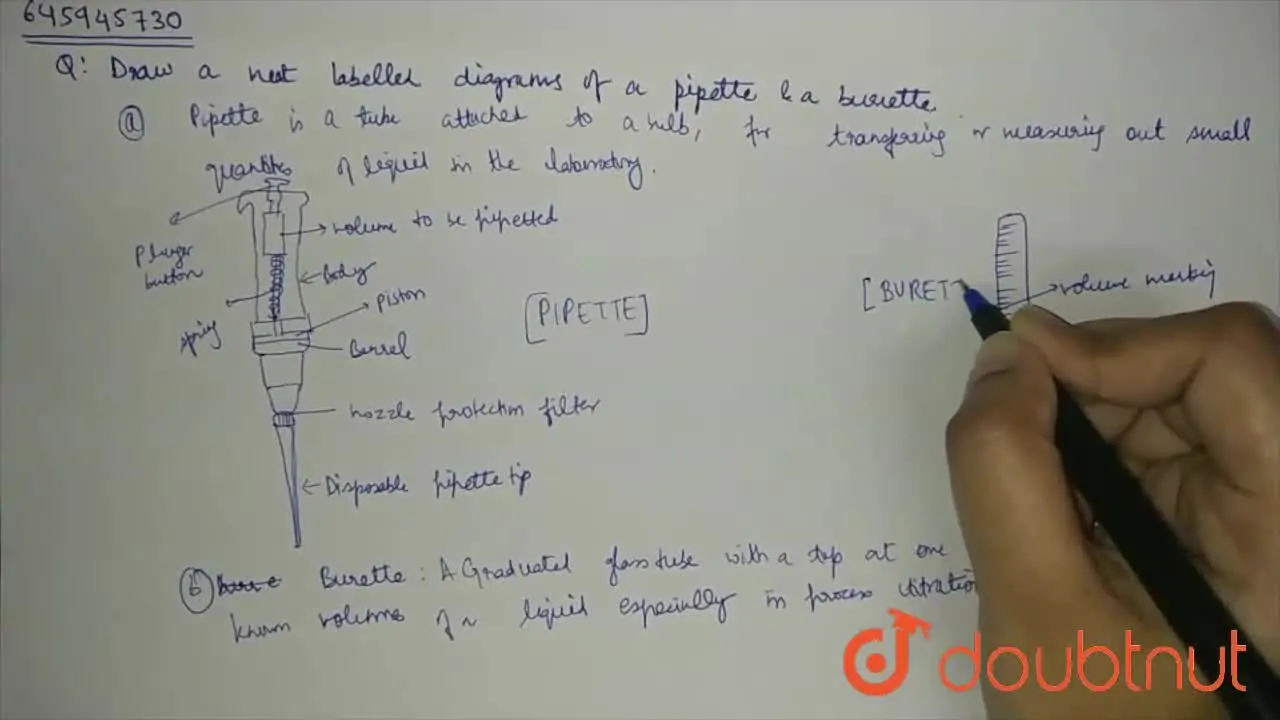 645945730
Q: Draw a neat labelled diagrams of a pipette & a burette.
(a) Pipette is a tube attached to a bulb, for transfering or measuring out small
quantities of liquid in the laboratory.
volume to be pipetted
Plunger
button
Body
piston
spring
Barrel
nozzle protection filter
Disposable pipette tip
[PIPETTE]
[BURET
volume marking
(b) Burette: A Graduated glass tube with a tap at one
known volumes of liquid especially in process titration
doubtnut